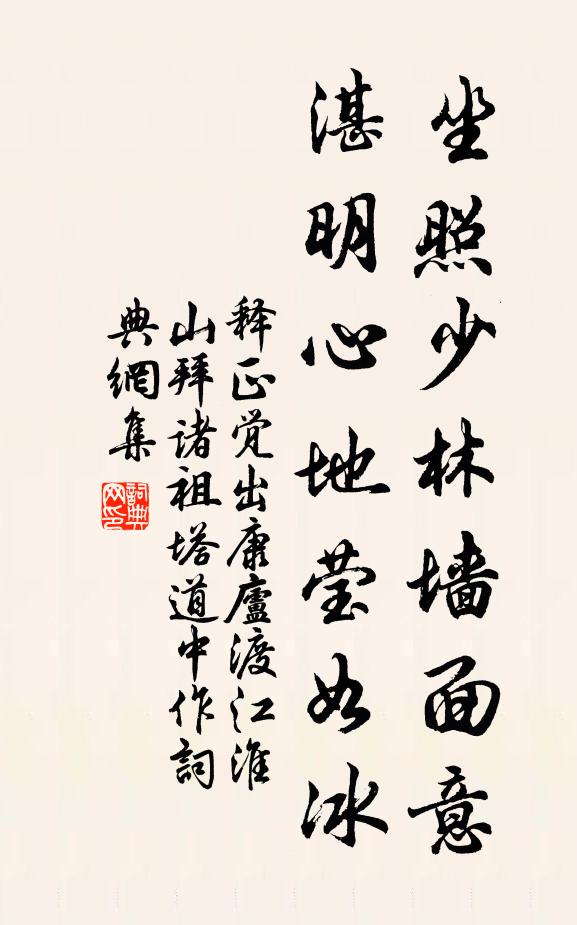 坐照少林墙面意
湛明心地莹如冰
释正觉出康廬渡江淮
山拜诸祖塔道中作詞
典網集
詞典网印